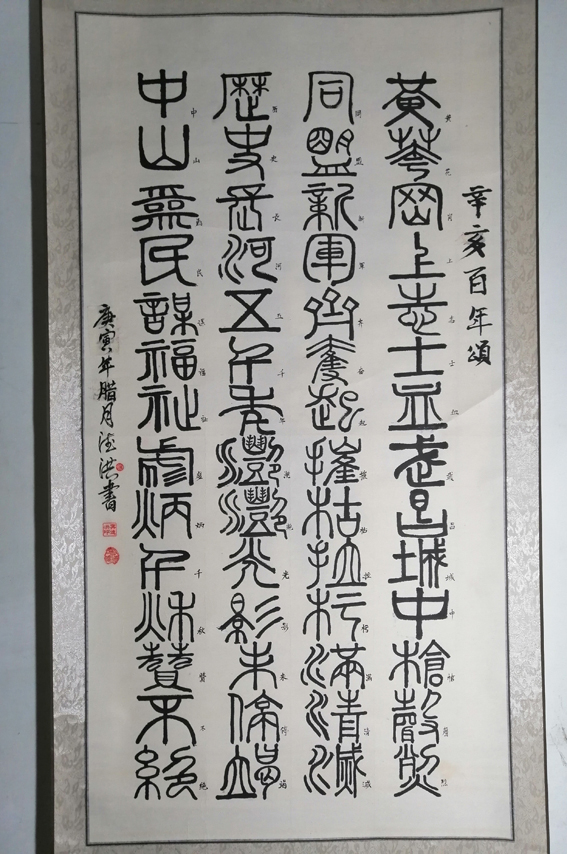 辛亥百年頌
黃華岡上志士血武昌城中槍聲烈
同盟新軍齊奮起摧枯拉朽滿清滅
歷史長河五千年灩灩光影未停竭
中山為民謀福祉彪炳千秋贊不絕
庚寅年腊月德洪書